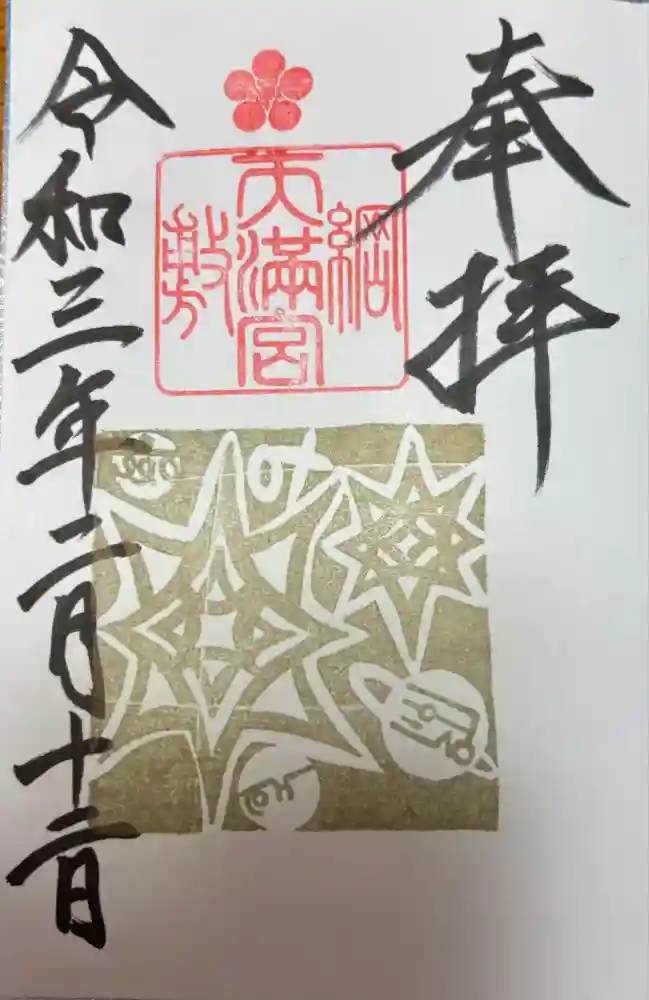 奉拝
綱
天満宮
敷
令和三年二月十二日